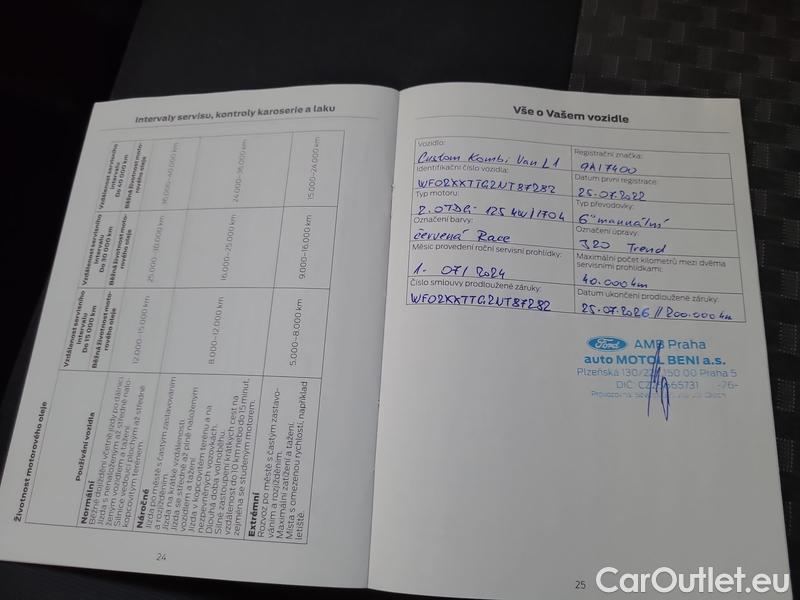 Intervaly servisu, kontroly karoserie a laku
Životnost motorového oleje
Používání vozidla
Vzdálenost servisního intervalu
Do 15 000 km
Běžná životnost motorového oleje
Vzdálenost servisního intervalu
Do 30 000 km
Běžná životnost motorového oleje
Vzdálenost servisního intervalu
Do 40 000 km
Běžná životnost motorového oleje
Normální
Běžné dojíždění včetně jízdy po dálnici
Jízda s nenaloženým až středně naloženým vozidlem a tažení.
Silnice vedoucí plochým až středně kopcovitým terénem
12.000–15.000 km
25.000–30.000 km
36.000–40.000 km
Náročné
Jízda po městě s častým zastavováním a rozjížděním.
Jízda na krátké vzdálenosti
Jízda se středně až plně naloženým vozidlem a tažení.
Jízda v kopcovitém terénu a na nezpevněných vozovkách.
Dlouhá doba volnoběhu.
Silné zastoupení krátkých cest na vzdálenost do 10 km nebo do 15 minut, zejména se studeným motorem.
8.000–12.000 km
16.000–25.000 km
24.000–36.000 km
Extrémní
Rozvoz po městě s častým zastavováním a rozjížděním.
Maximální zatížení a tažení.
Místa s omezenou rychlostí, například letiště.
5.000–8.000 km
9.000–16.000 km
15.000–24.000 km
24
Vše o Vašem vozidle
Vozidlo:
Custom Kombi Van L1
Registrační značka:
9AI7400
Identifikační číslo vozidla:
WF02XXTTG2NT87282
Datum první registrace:
25.07.2022
Typ motoru:
2.0TDCi 125 kW/170k
Typ převodovky:
6° manuální
Označení barvy:
červená Race
Označení úpravy:
320 Trend
Měsíc provedení roční servisní prohlídky:
1- 07/2024
Maximální počet kilometrů mezi dvěma servisními prohlídkami:
40.000km
Číslo smlouvy prodloužené záruky:
WF02XXTTG2NT87282
Datum ukončení prodloužené záruky:
25.07.2026//200.000km
Ford
AMB Praha
auto MOTOL BENI a.s.
Plzeňská 130/22 150 00 Praha 5
-76-
25
CarOutlet.eu